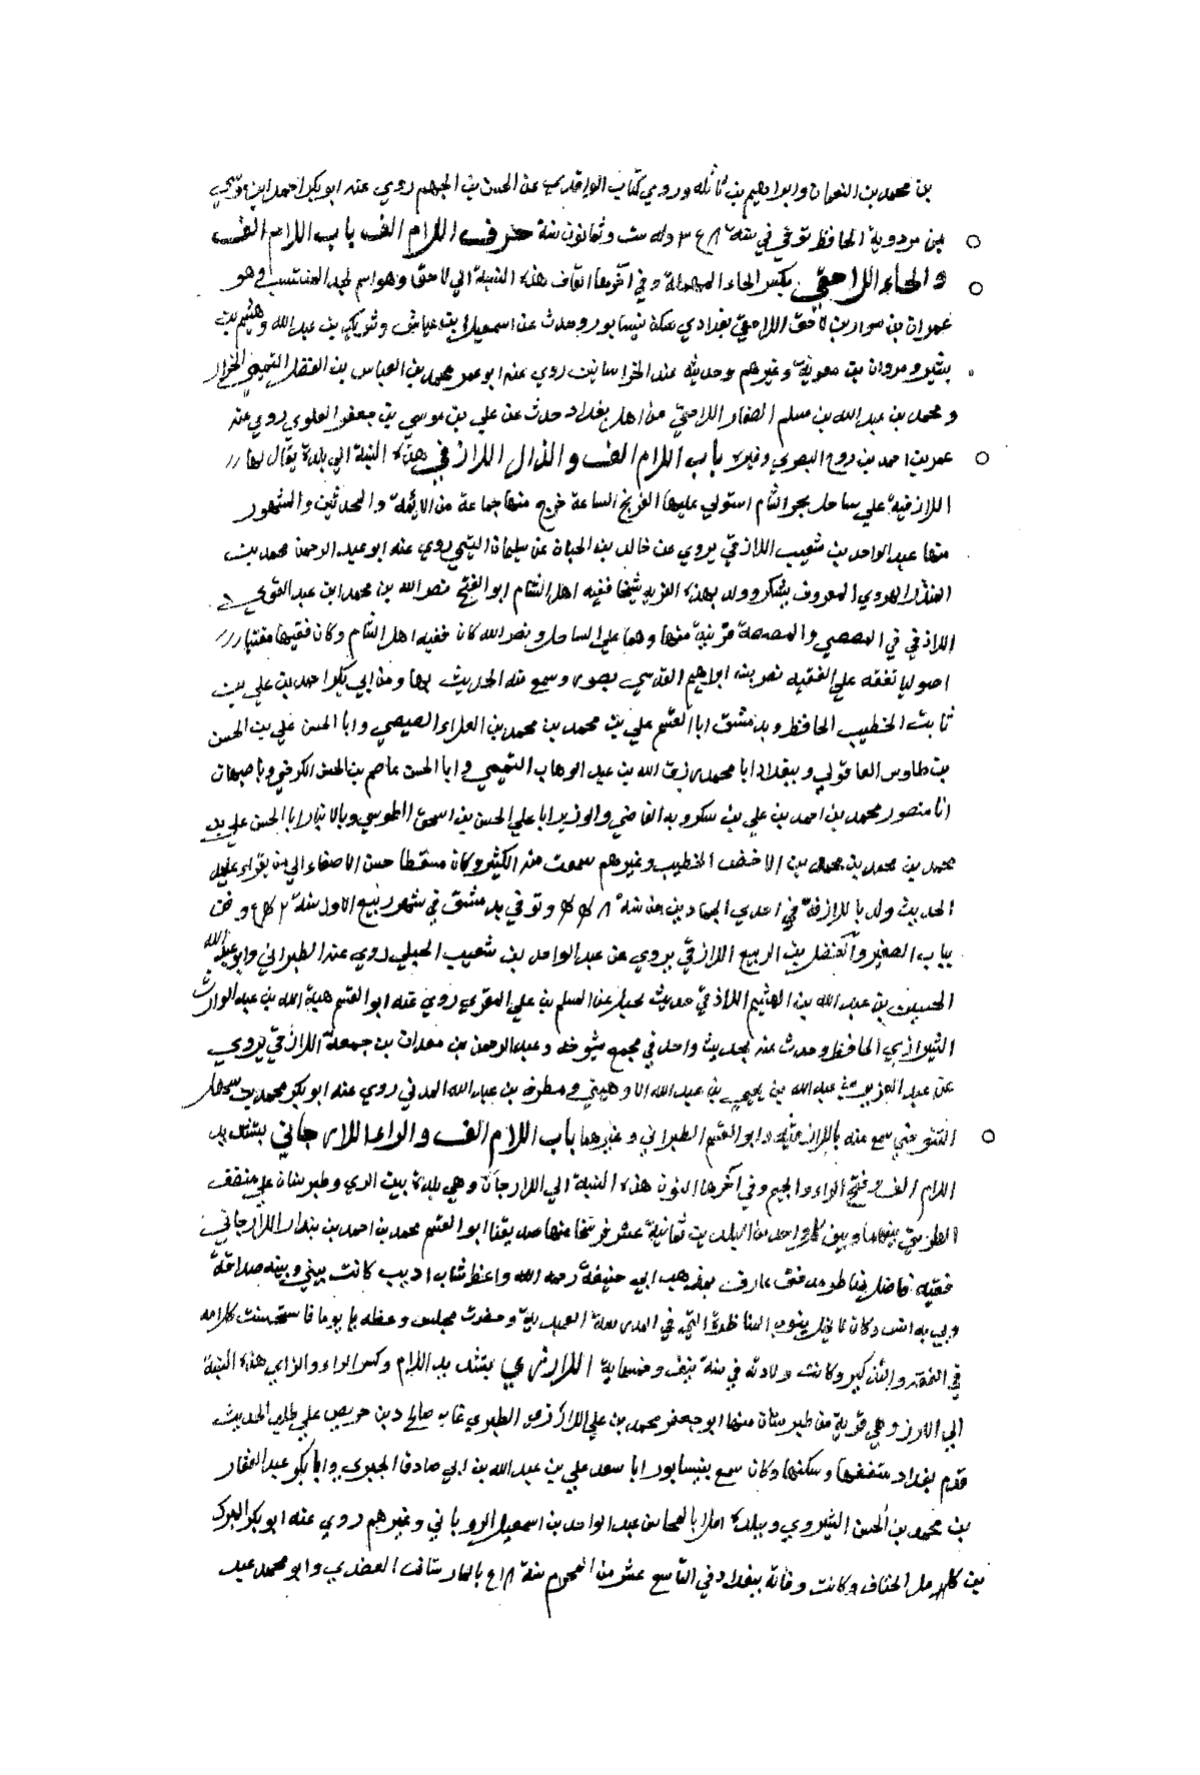 بن محمد بن النعمان وابراهيم بن نائله وروي كتاب الواقدي عن الحسن بن الجهم روي عنه ابو بكر احمد ابن موسي
بن مردوية الحافظ توفي في سنة وله ست وثمانون سنة حرف اللام الف باب اللام الف
والحاء اللاحقي بكسر الحاء المهملة وفي آخرها القاف هذه النسبة الي لاحق وهو اسم لجد المنتسب وهو
عمران بن سوار بن لاحق اللاحقي بغدادي سكن نيسابور وحدث عن اسمعيل بن عياش وشريك بن عبد الله وهشيم بن
بشير ومروان بن معوية وغيرهم وحديثه عند الخراسانين روي عنه ابو عمر محمد بن العباس بن الفضل التميمي الخزاز
ومحمد بن عبد الله بن مسلم الصفار اللاحقي من اهل بغداد حدث عن علي بن موسي بن جعفر العلوي روي عنه
عمر بن احمد بن روح البصري وغيره باب اللام الف والذال اللاذقي هذه النسبة الي بلدة يقال لها
اللاذقية علي ساحل بحر الشام استولي عليها الفرنج الساعة خرج منها جماعة من الايمة والمحدثين والمشهور
منها عبد الواحد بن شعيب اللاذقي يروي عن خالد بن الحباب عن سليمان التيمي روي عنه ابو عبد الرحمن محمد بن
المنذر الهروي المعروف بشكر وولد بهذه القريه شيخنا فقيه اهل الشام ابو الفتح نصر الله بن محمد ابن عبد القوي
اللاذقي في المصيصي والمصيصة قرنية منها وهما علي الساحل ونصر الله كان فقيه اهل الشام وكان فقيها مفتيا
اصوليا تفقه علي الفقيه نصر بن ابراهيم المقدسي بصور وسمع منه الحديث بها ومن ابي بكر احمد بن علي بن
ثابت الخطيب الحافظ وبدمشق ابا القسم علي بن محمد بن محمد بن العلاء المصيصي وابا الحسن علي بن الحسن
بن طاوس العاقولي وببغداد ابا محمد رزق الله بن عبد الوهاب التميمي وابا الحسن عاصم بن الحسن الكرخي وباصبهان
انا منصور محمد بن احمد بن علي بن سكرويه القاضي والوزير ابا علي الحسن بن اسحق الطوسي وبالانبار ابا الحسن علي بن
محمد بن محمد بن محمد بن الاخضر الخطيب وغيرهم سمعت منه الكثير وكان متيقظا حسن الاصغاء الي من يقراء عليه
الحديث ولد باللاذقية في احدي الجمادين من سنة وتوفي بدمشق في شهر ربيع الاول سنة ودفن
بباب الصغير والفضل بن الربيع اللاذقي يروي عن عبد الواحد بن شعيب الجبلي روي عنه الطبراني وابو عبد الله
الحسين بن عبد الله بن الهثيم اللاذقي حديث بجبل عن المسلم بن علي المقري روي عنه ابو القسم هبة الله بن عبد الوارث
الشيرازي الحافظ وحدث عنه بحديث واحد في معجم شيوخه وعبد الرحمن بن معدان بن جمعة اللاذقي يروي
عن عبد العزيز بن عبد الله بن يحيي بن عبد الله الاويسي ومطرف بن عبد الله المدني روي عنه ابو بكر محمد بن سهل
التنوخي سمع منه باللاذقيه وابو القسم الطبراني وغيرهما باب اللام الف والراء اللارجاني بتشديد
اللام الف وفتح الراء والجيم وفي آخرها النون هذه النسبة الي اللارجان وهي بلدة بين الري وطبرستان علي منتصف
الطريق بينهما وبين كل واحد من البلدين ثمانية عشر فرسخا منها صديقنا ابو القسم محمد بن احمد بن بندار اللارجاني
فقيه فاضل مناظر عارف بمذهب ابي حنيفة رحمه الله واعظ شاب اديب كانت بيني وبينه صداقة
وبي به انس وكان لا يخل بنوب المناظرة التي في المدرسة العميدية وحضرت مجلس وعظه يوما فاستحسنت كلامه
في التفسير والتذكير وكانت ولادته في سنة نيف وخمسماية اللارزي بتشديد اللام وكسر الراء والزاي هذه النسبة
الي اللارز وهي قرية من طبرستان منها ابو جعفر محمد بن علي اللارزي الطبري شاب صالح دين حريص علي طلب الحديث
قدم بغداد متفقها وسكنها وكان سمع بنيسابور ابا سعد علي بن عبد الله بن ابي صادق الحيري وابا بكر عبد الغفار
بن محمد بن الحسن الشيروي وببلده امل ابا المحاسن عبد الواحد بن اسمعيل الروياني وغيرهم روي عنه ابو بكر المبارك
بن كامل الخفاف وكانت وفاته ببغداد في التاسع عشر من المحرم سنة بالمارستان العضدي وابو محمد عبد